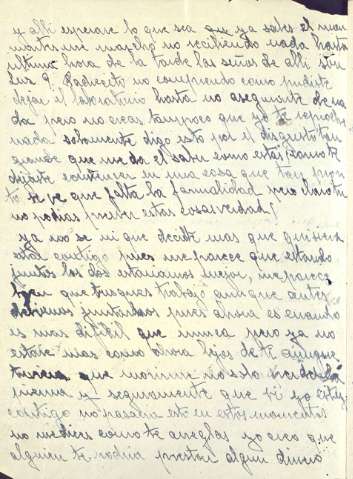 y alli esperare lo que sea ya sabes el mian
marcho no recibiendo nada hasta
ultima hora de la tarde las señas de alli
Luz 9. Pachecito no comprendo como pudiste
dejar el laboratorio hasta no asegurarte de na
da pero no creas tampoco que yo te reprocho
nada solamente digo esto por el disgusto tan
grande que me da el saber como estas como te
dejaste en una casa que tan pron
to se ve que falta la formalidad pero claro tu
no podias prever estas cosas verdad?
ya no se ni que decirte mas que quisiera
estar contigo pues me parece que estando
juntos los dos estariamos mejor, me parece
bien que busques trabajo aunque antes
debemos juntarnos pues ahora es cuando
es mas dificil que nunca pero ya no
estare mas como ahora lejos de ti aunque
tuviera que morirme no solo
pierna y seguramente que si yo estoy
contigo no pasaria esto en estos momentos
no me dices como te arreglas yo creo que
alguien te podria prestar algun dinero